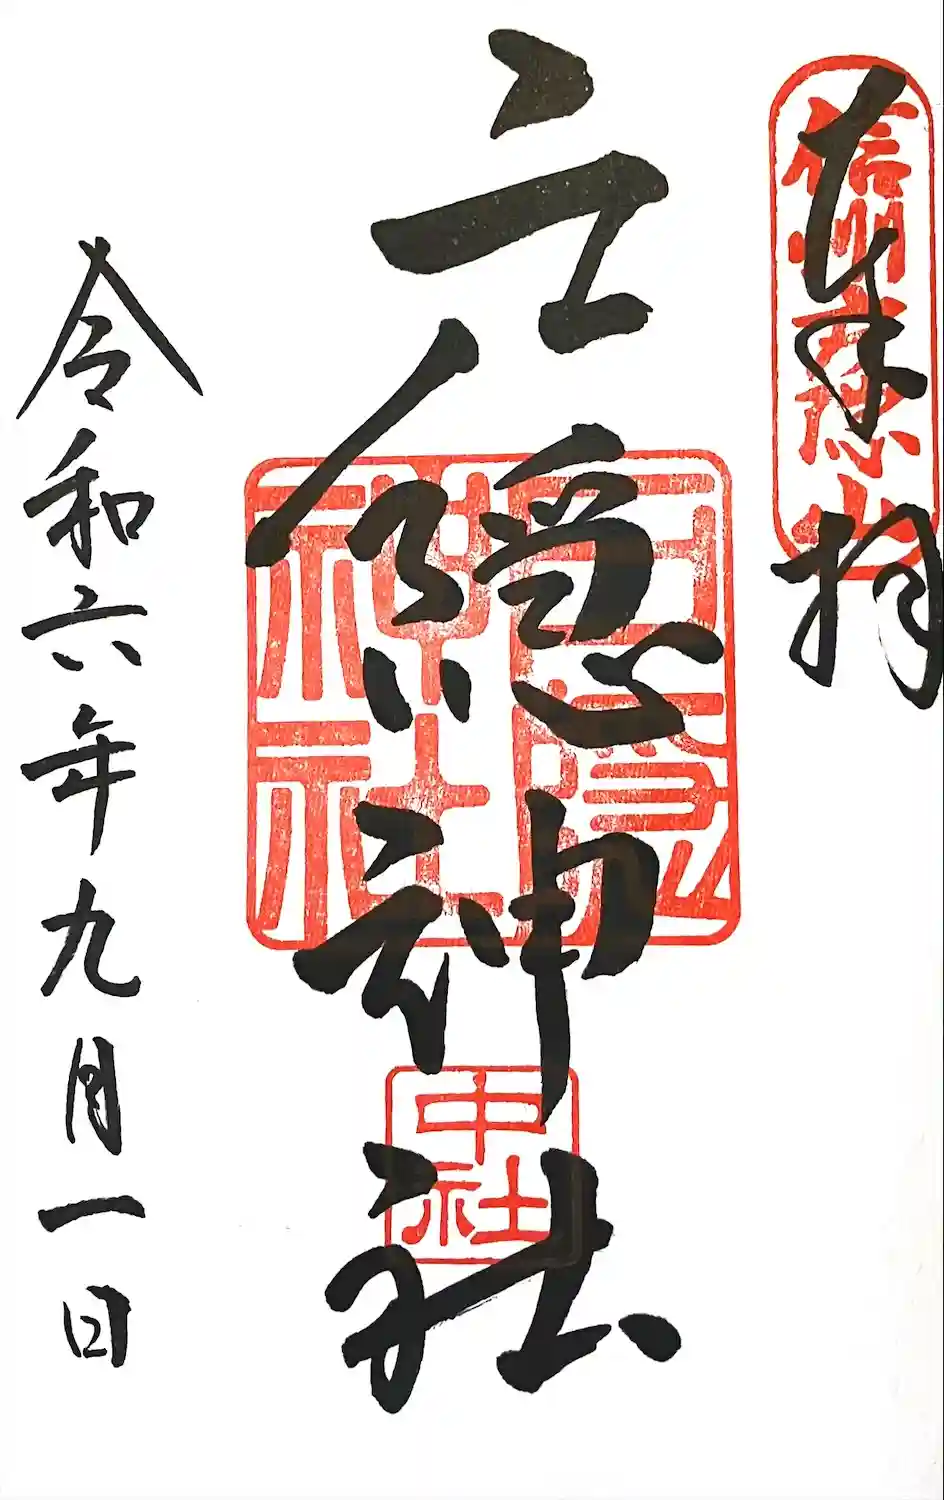 奉拝
信州戸隠山
戸隠神社
戸隠
神社
中社
令和六年九月一日